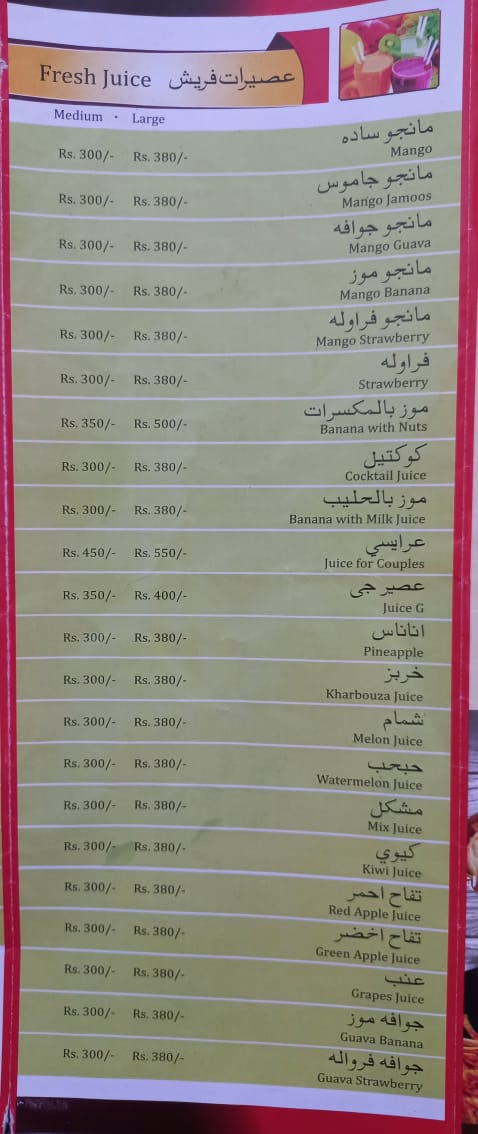 Fresh Juice عصيرات فريش
Medium · Large
مانجو ساده
Rs. 300/- Rs. 380/- Mango
مانجو جاموس
Rs. 300/- Rs. 380/- Mango Jamoos
مانجو جوافه
Rs. 300/- Rs. 380/- Mango Guava
مانجو موز
Rs. 300/- Rs. 380/- Mango Banana
مانجو فراوله
Rs. 300/- Rs. 380/- Mango Strawberry
فراوله
Rs. 300/- Rs. 380/- Strawberry
موز بالمكسرات
Rs. 350/- Rs. 500/- Banana with Nuts
كوكتيل
Rs. 300/- Rs. 380/- Cocktail Juice
موز بالحليب
Rs. 300/- Rs. 380/- Banana with Milk Juice
عرايسي
Rs. 450/- Rs. 550/- Juice for Couples
عصير جى
Rs. 350/- Rs. 400/- Juice G
اناناس
Rs. 300/- Rs. 380/- Pineapple
خربز
Rs. 300/- Rs. 380/- Kharbouza Juice
شمام
Rs. 300/- Rs. 380/- Melon Juice
حبحب
Rs. 300/- Rs. 380/- Watermelon Juice
مشكل
Rs. 300/- Rs. 380/- Mix Juice
كيوي
Rs. 300/- Rs. 380/- Kiwi Juice
تفاح احمر
Rs. 300/- Rs. 380/- Red Apple Juice
تفاح اخضر
Rs. 300/- Rs. 380/- Green Apple Juice
عنب
Rs. 300/- Rs. 380/- Grapes Juice
جوافه موز
Rs. 300/- Rs. 380/- Guava Banana
جوافه فرواله
Rs. 300/- Rs. 380/- Guava Strawberry